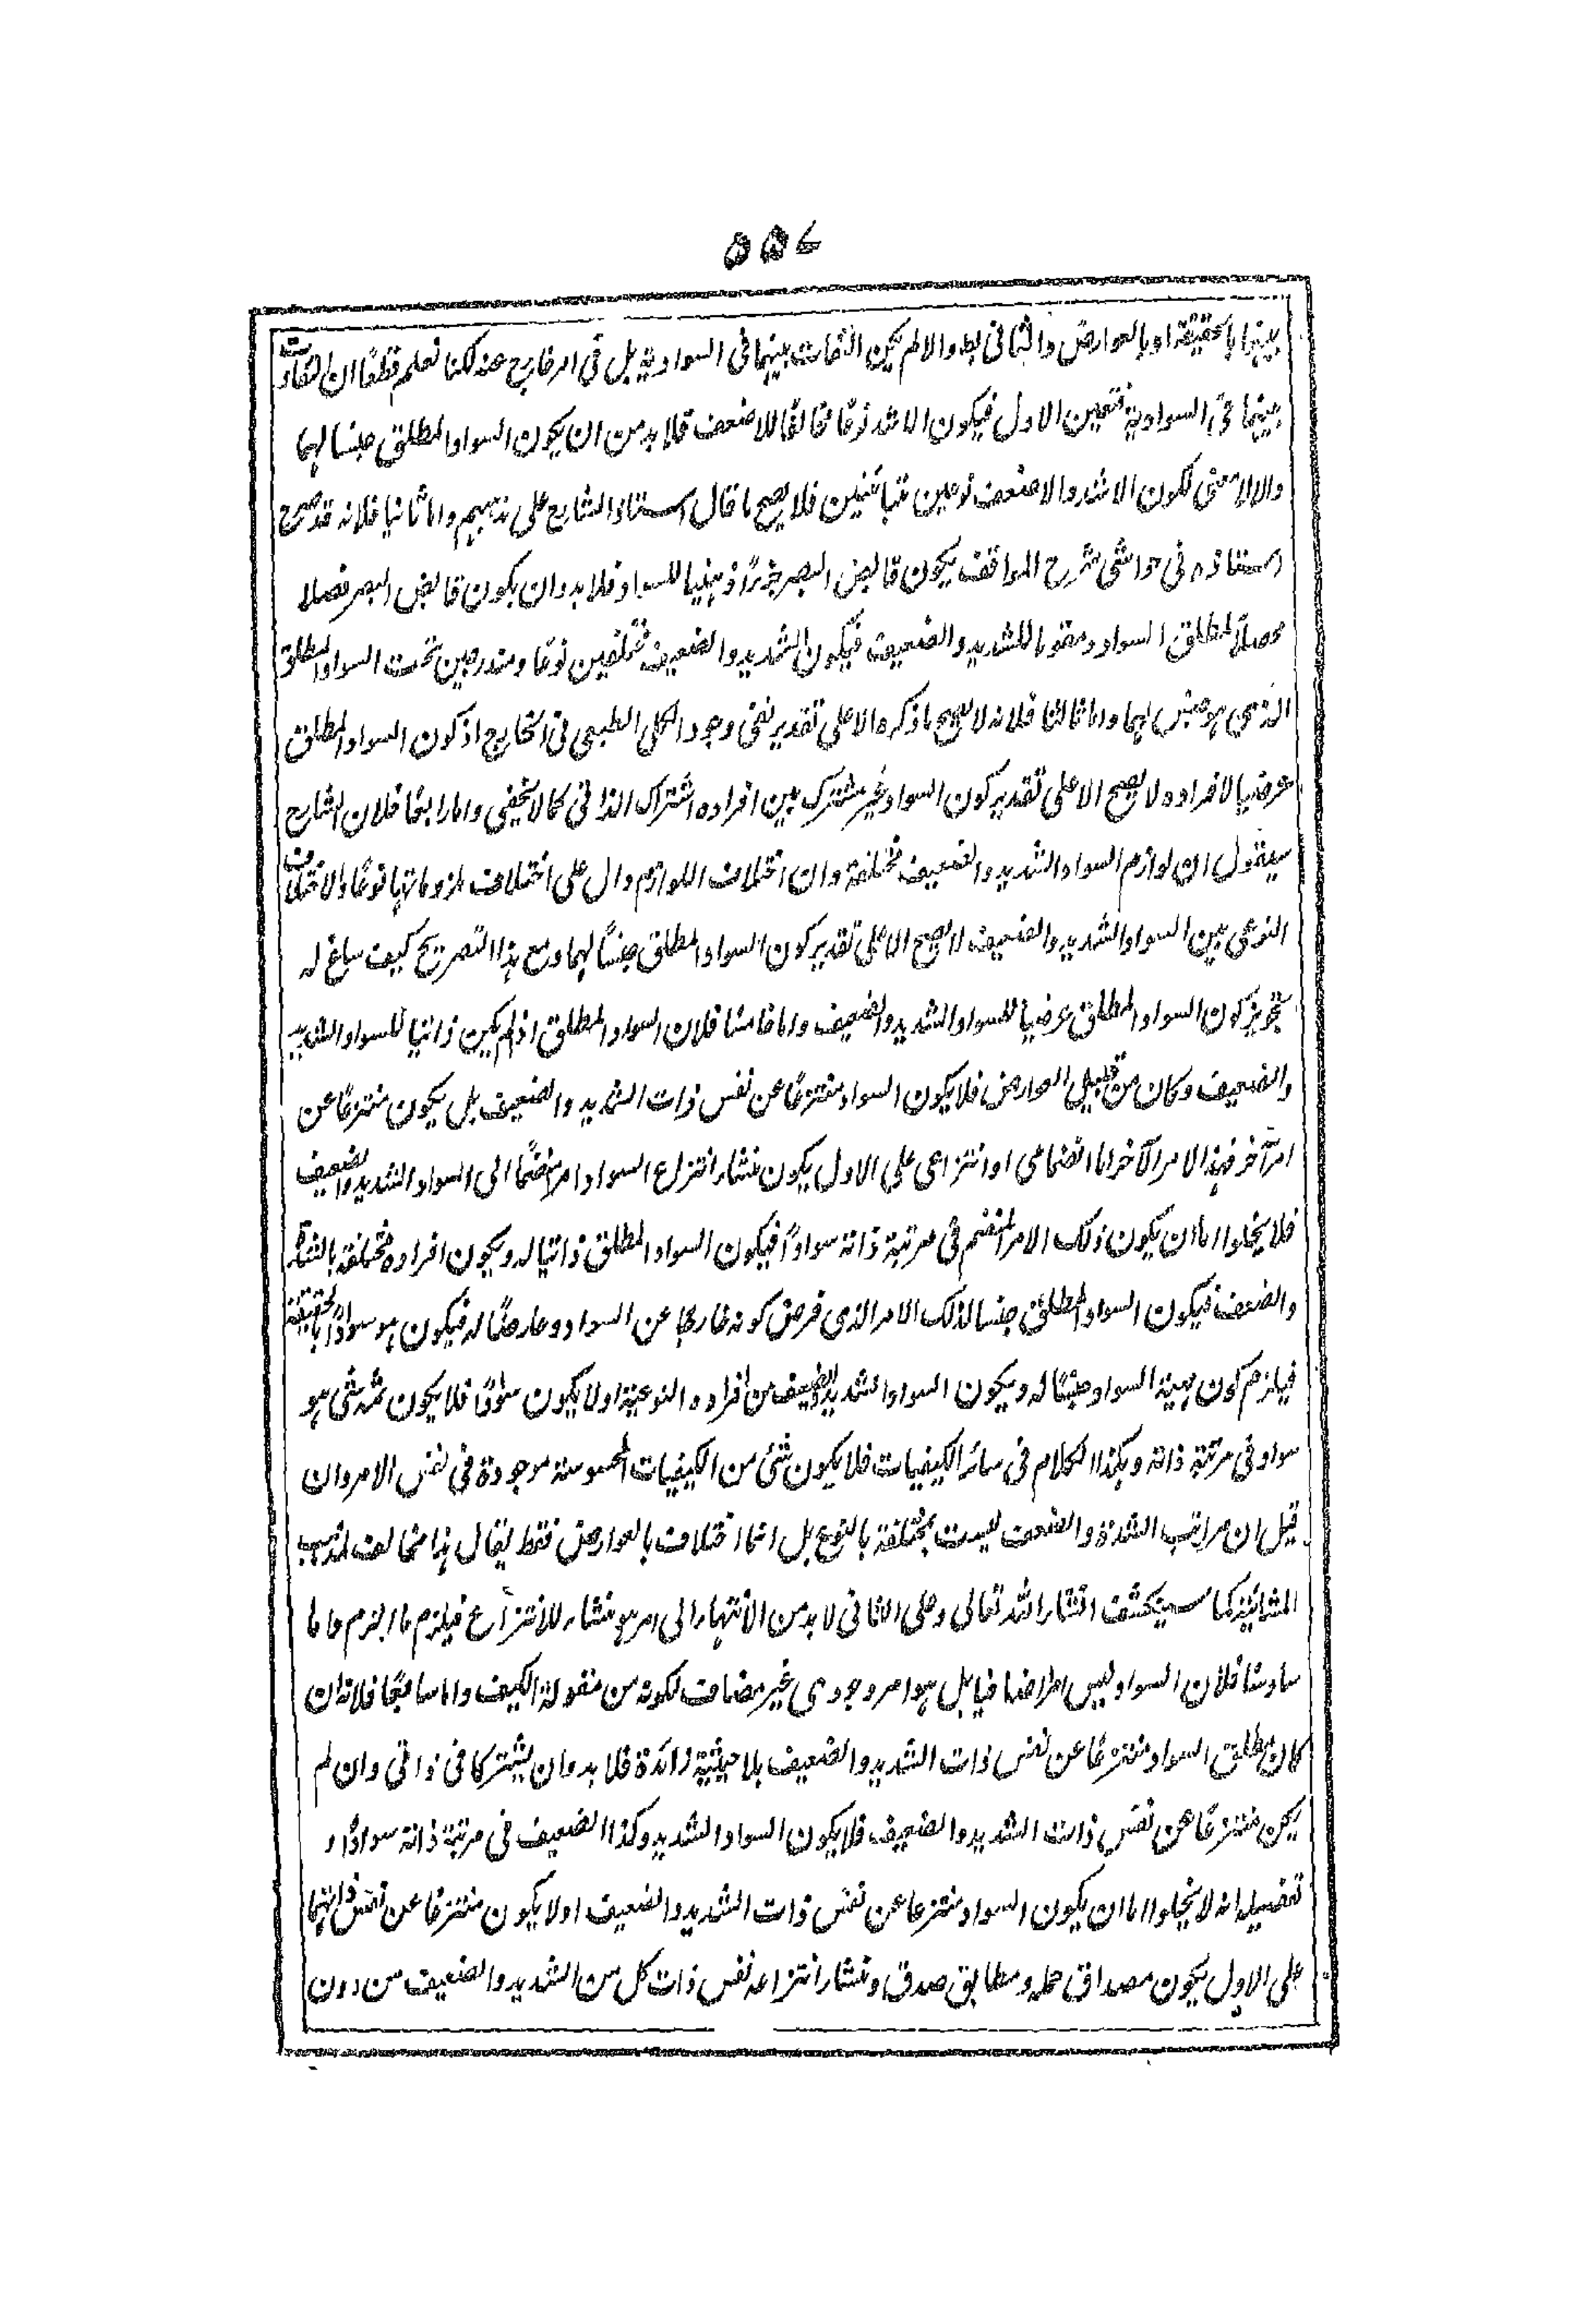 ۵۵۷
بينهما بالحقيقة او بالعوارض والثاني بط والا لم يكن التفاوت بينهما في السوادية بل في امر خارج عنه لكنا نعلم قطعًا ان التفاوت
بينهما في السوادية فتعين الاول فيكون الاشد نوعًا مخالفًا للاضعف فلا بد من ان يكون السواد المطلق جنسا لهما
والا لا معنى لكون الاشد والاضعف نوعين متبائنين فلا يصح ما قال استاذ الشارح على مذهبهم واما ثانيا فلانه قد صرح
استاذه في حواشي شرح المواقف بكون قابض البصر جزءًا ذهنيا للسواد فلا بد وان يكون قابض البصر فصلا
محصلًا لمطلق السواد ومقوما للشديد والضعيف فيكون الشديد والضعيف مختلفين نوعًا ومندرجين تحت السواد المطلق
الذي هو جنس لهما واما ثالثا فلانه لا يصح ما ذكره الا على تقدير نفي وجود الكلي الطبعي في الخارج اذ كون السواد المطلق
عرضيا لافراده لا يصح الا على تقدير كون السواد غير مشترك بين افراده اشتراك الذاتي كما لا يخفى واما رابعًا فلان الشارح
سيقول ان لوازم السواد الشديد والضعيف مختلفة وان اختلاف اللوازم دال على اختلاف ملزوماتها نوعًا والاختلاف
النوعي بين السواد الشديد والضعيف لا يصح الا على تقدير كون السواد المطلق جنسًا لهما ومع هذا التصريح كيف ساغ له
تجويز كون السواد المطلق عرضيا للسواد الشديد والضعيف واما خامسًا فلان السواد المطلق اذا لم يكن ذاتيا للسواد الشديد
والضعيف وكان من قبيل العوارض فلا يكون السواد منتزعًا عن نفس ذات الشديد والضعيف بل يكون منتزعًا عن
امر آخر فهذا الامر الآخر اما انضمامي او انتزاعي على الاول يكون منشاء انتزاع السواد امرا منضمًا الى السواد الشديد والضعيف
فلا يخلوا اما ان يكون ذلك الامر المنضم في مرتبة ذاته سوادًا فيكون السواد المطلق ذاتيا له ويكون افراده مختلفة بالشدة
والضعف فيكون السواد المطلق جنسا لذلك الامر الذي فرض كونه خارجًا عن السواد وعارضًا له فيكون هو سوادًا بالحقيقة
فيلزم كون مهية السواد جنسًا له ويكون السواد الشديد والضعيف من افراده النوعية او لا يكون سوادًا فلا يكون ثمه شئ هو
سواد في مرتبة ذاته وهكذا الكلام في سائر الكيفيات فلا يكون شئ من الكيفيات المحسوسة موجودة في نفس الامر وان
قيل ان مراتب الشدة والضعف ليست بمختلفة بالنوع بل انما اختلاف بالعوارض فقط يقال هذا مخالف لمذهب
المشائية كما سينكشف انشاء الله تعالى وعلى الثاني لا بد من الانتهاء الى امر هو منشاء للانتزاع فيلزم ما لزم واما
سادسًا فلان السواد ليس امرا اضافيا بل هو امر وجودي غير مضاف لكونه من مقولة الكيف واما سابعًا فلانه ان
كان مطلق السواد منتزعًا عن نفس ذات الشديد والضعيف بلا حيثية زائدة فلا بد وان يشتركا في ذاتي وان لم
يكن منتزعًا عن نفس ذات الشديد والضعيف فلا يكون السواد الشديد وكذا الضعيف في مرتبة ذاته سوادًا و
تفصيله انه لا يخلوا اما ان يكون السواد منتزعا عن نفس ذات الشديد والضعيف او لا يكون منتزعًا عن نفس ذاتيهما
على الاول يكون مصداق حمله ومطابق صدق ومنشاء انتزاعه نفس ذات كل من الشديد والضعيف من دون